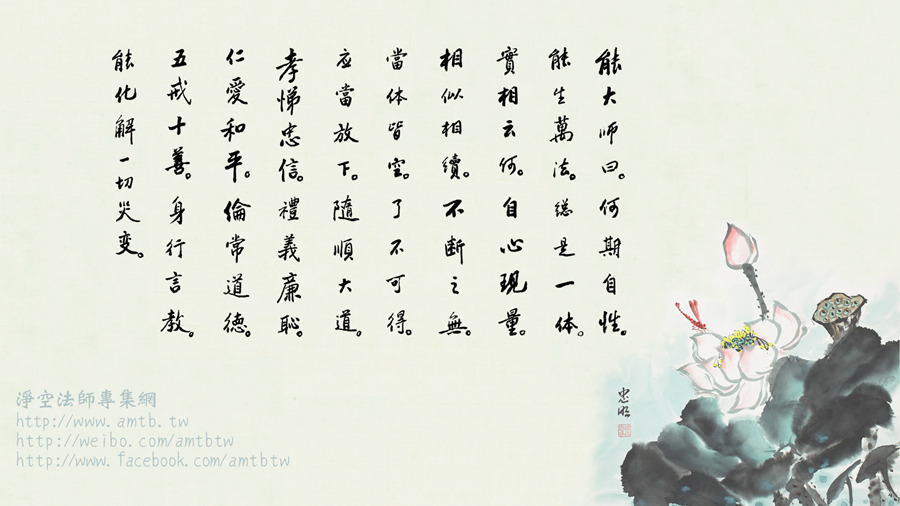 能大师曰。何期自性。
能生萬法。總是一体。
實相云何。自心現量。
相似相續。不断之無。
當体皆空。了不可得。
应當放下。隨順大道。
孝悌忠信。禮義廉恥。
仁愛和平。倫常道德。
五戒十善。身行言教。
能化解一切災变。
忠昭
淨空法師專集網
http://www.amtb.tw
http://weibo.com/amtbtw
http://www.facebook.com/amtbtw